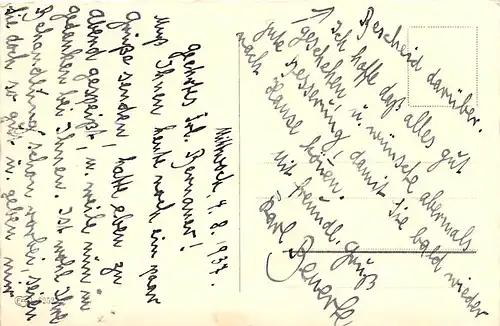 Mittwoch, 4. 8. 1937.
Geehrtes Frl. Bernauer!
Muß Ihnen heute noch ein paar
Grüße senden, hatte eben zu
Abend gespeist u. weile nun in
Gedanken bei Ihnen. Ist wohl Ihre
Behandlung schon vorbei, seien
Sie doch so gut u. geben mir
Bescheid darüber.
Ich hoffe daß alles gut
geschehen u. wünsche abermals
gute Besserung, damit Sie bald wieder
nach Hause können.
Mit freundl. Gruß
Karl